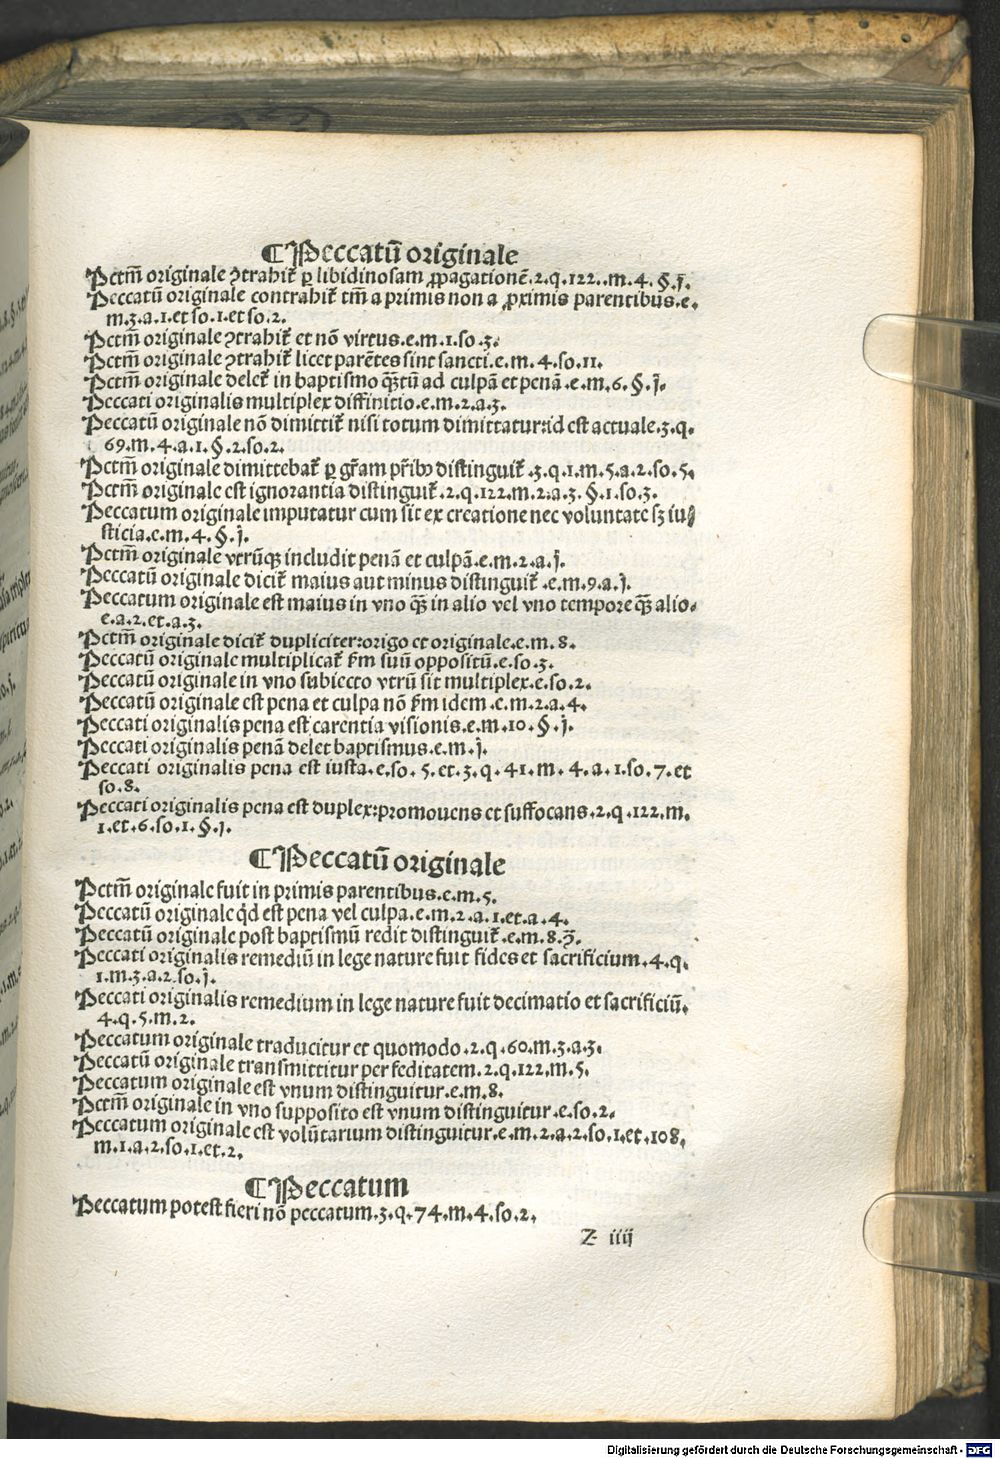 ¶ Peccatū originale
Pctm̄ originale ↄtrahit᷑ ꝑ libidinosam ꝓpagationē.2.q.122..m.4.§.j.
Peccatū originale contrahit᷑ tm̄ a primis non a ꝓximis parentibus.e.
m.3.a.1.et so.1.et so.2.
Pctm̄ originale ↄtrahit᷑ et nō virtus.e.m.1.so.3.
Pctm̄ originale ↄtrahit᷑ licet parētes sint sancti.e.m.4.so.11.
Pctm̄ originale delet᷑ in baptismo qȝ̄tū ad culpā et penā.e.m.6.§.j.
Peccati originalis multiplex diffinitio.e.m.2.a.3.
Peccatū originale nō dimittit᷑ nisi totum dimittatur:id est actuale.3.q.
69.m.4.a.1.§.2.so.2.
Pctm̄ originale dimittebat᷑ ꝑ gr̄am pr̄ibꝰ distinguit᷑.3.q.1.m.5.a.2.so.5.
Pctm̄ originale est ignorantia distinguit᷑.2.q.122.m.2.a.3.§.1.so.3.
Peccatum originale imputatur cum sit ex creatione nec voluntate sꝫ iu⸗
sticia.e.m.4.§.j.
Pctm̄ originale vtrūqꝫ includit penā et culpā.e.m.2.a.j.
Peccatū originale dicit᷑ maius aut minus distinguit᷑.e.m.9.a.j.
Peccatum originale est maius in vno qȝ̄ in alio vel vno tempore qȝ̄ alio.
e.a.2.et.a.3.
Pctm̄ originale dicit᷑ dupliciter:origo et originale.e.m.8.
Peccatū originale multiplicat᷑ ẜm suū oppositū.e.so.3.
Peccatū originale in vno subiecto vtrū sit multiplex.e.so.2.
Peccatū originale est pena et culpa nō ẜm idem.e.m.2.a.4.
Peccati originalis pena est carentia visionis.e.m.10.§.j.
Peccati originalis penā delet baptismus.e.m.j.
Peccati originalis pena est iusta.e.so.5.et.3.q.41.m.4.a.1.so.7.et
so.8.
Peccati originalis pena est duplex:promouens et suffocans.2.q.122.m.
1.et.6.so.1.§.j.
¶ Peccatū originale
Pctm̄ originale fuit in primis parentibus.e.m.5.
Peccatū originale qd̄ est pena vel culpa.e.m.2.a.1.et.a.4.
Peccatū originale post baptismū redit distinguit᷑.e.m.8.
Peccati originalis remediū in lege nature fuit fides et sacrificium.4.q.
1.m.3.a.2.so.j.
Peccati originalis remedium in lege nature fuit decimatio et sacrificiū.
4.q.5.m.2.
Peccatum originale traducitur et quomodo.2.q.60.m.3.a.3.
Peccatū originale transmittitur per feditatem.2.q.122.m.5.
Peccatum originale est vnum distinguitur.e.m.8.
Pctm̄ originale in vno supposito est vnum distinguitur.e.so.2.
Peccatum originale est volūtarium distinguitur.e.m.2.a.2.so.1.et.108.
m.1.a.2.so.1.et.2.
¶ Peccatum
Peccatum potest fieri nō peccatum.3.q.74.m.4.so.2.
Z iiij
Digitalisierung gefördert durch die Deutsche Forschungsgemeinschaft - DFG